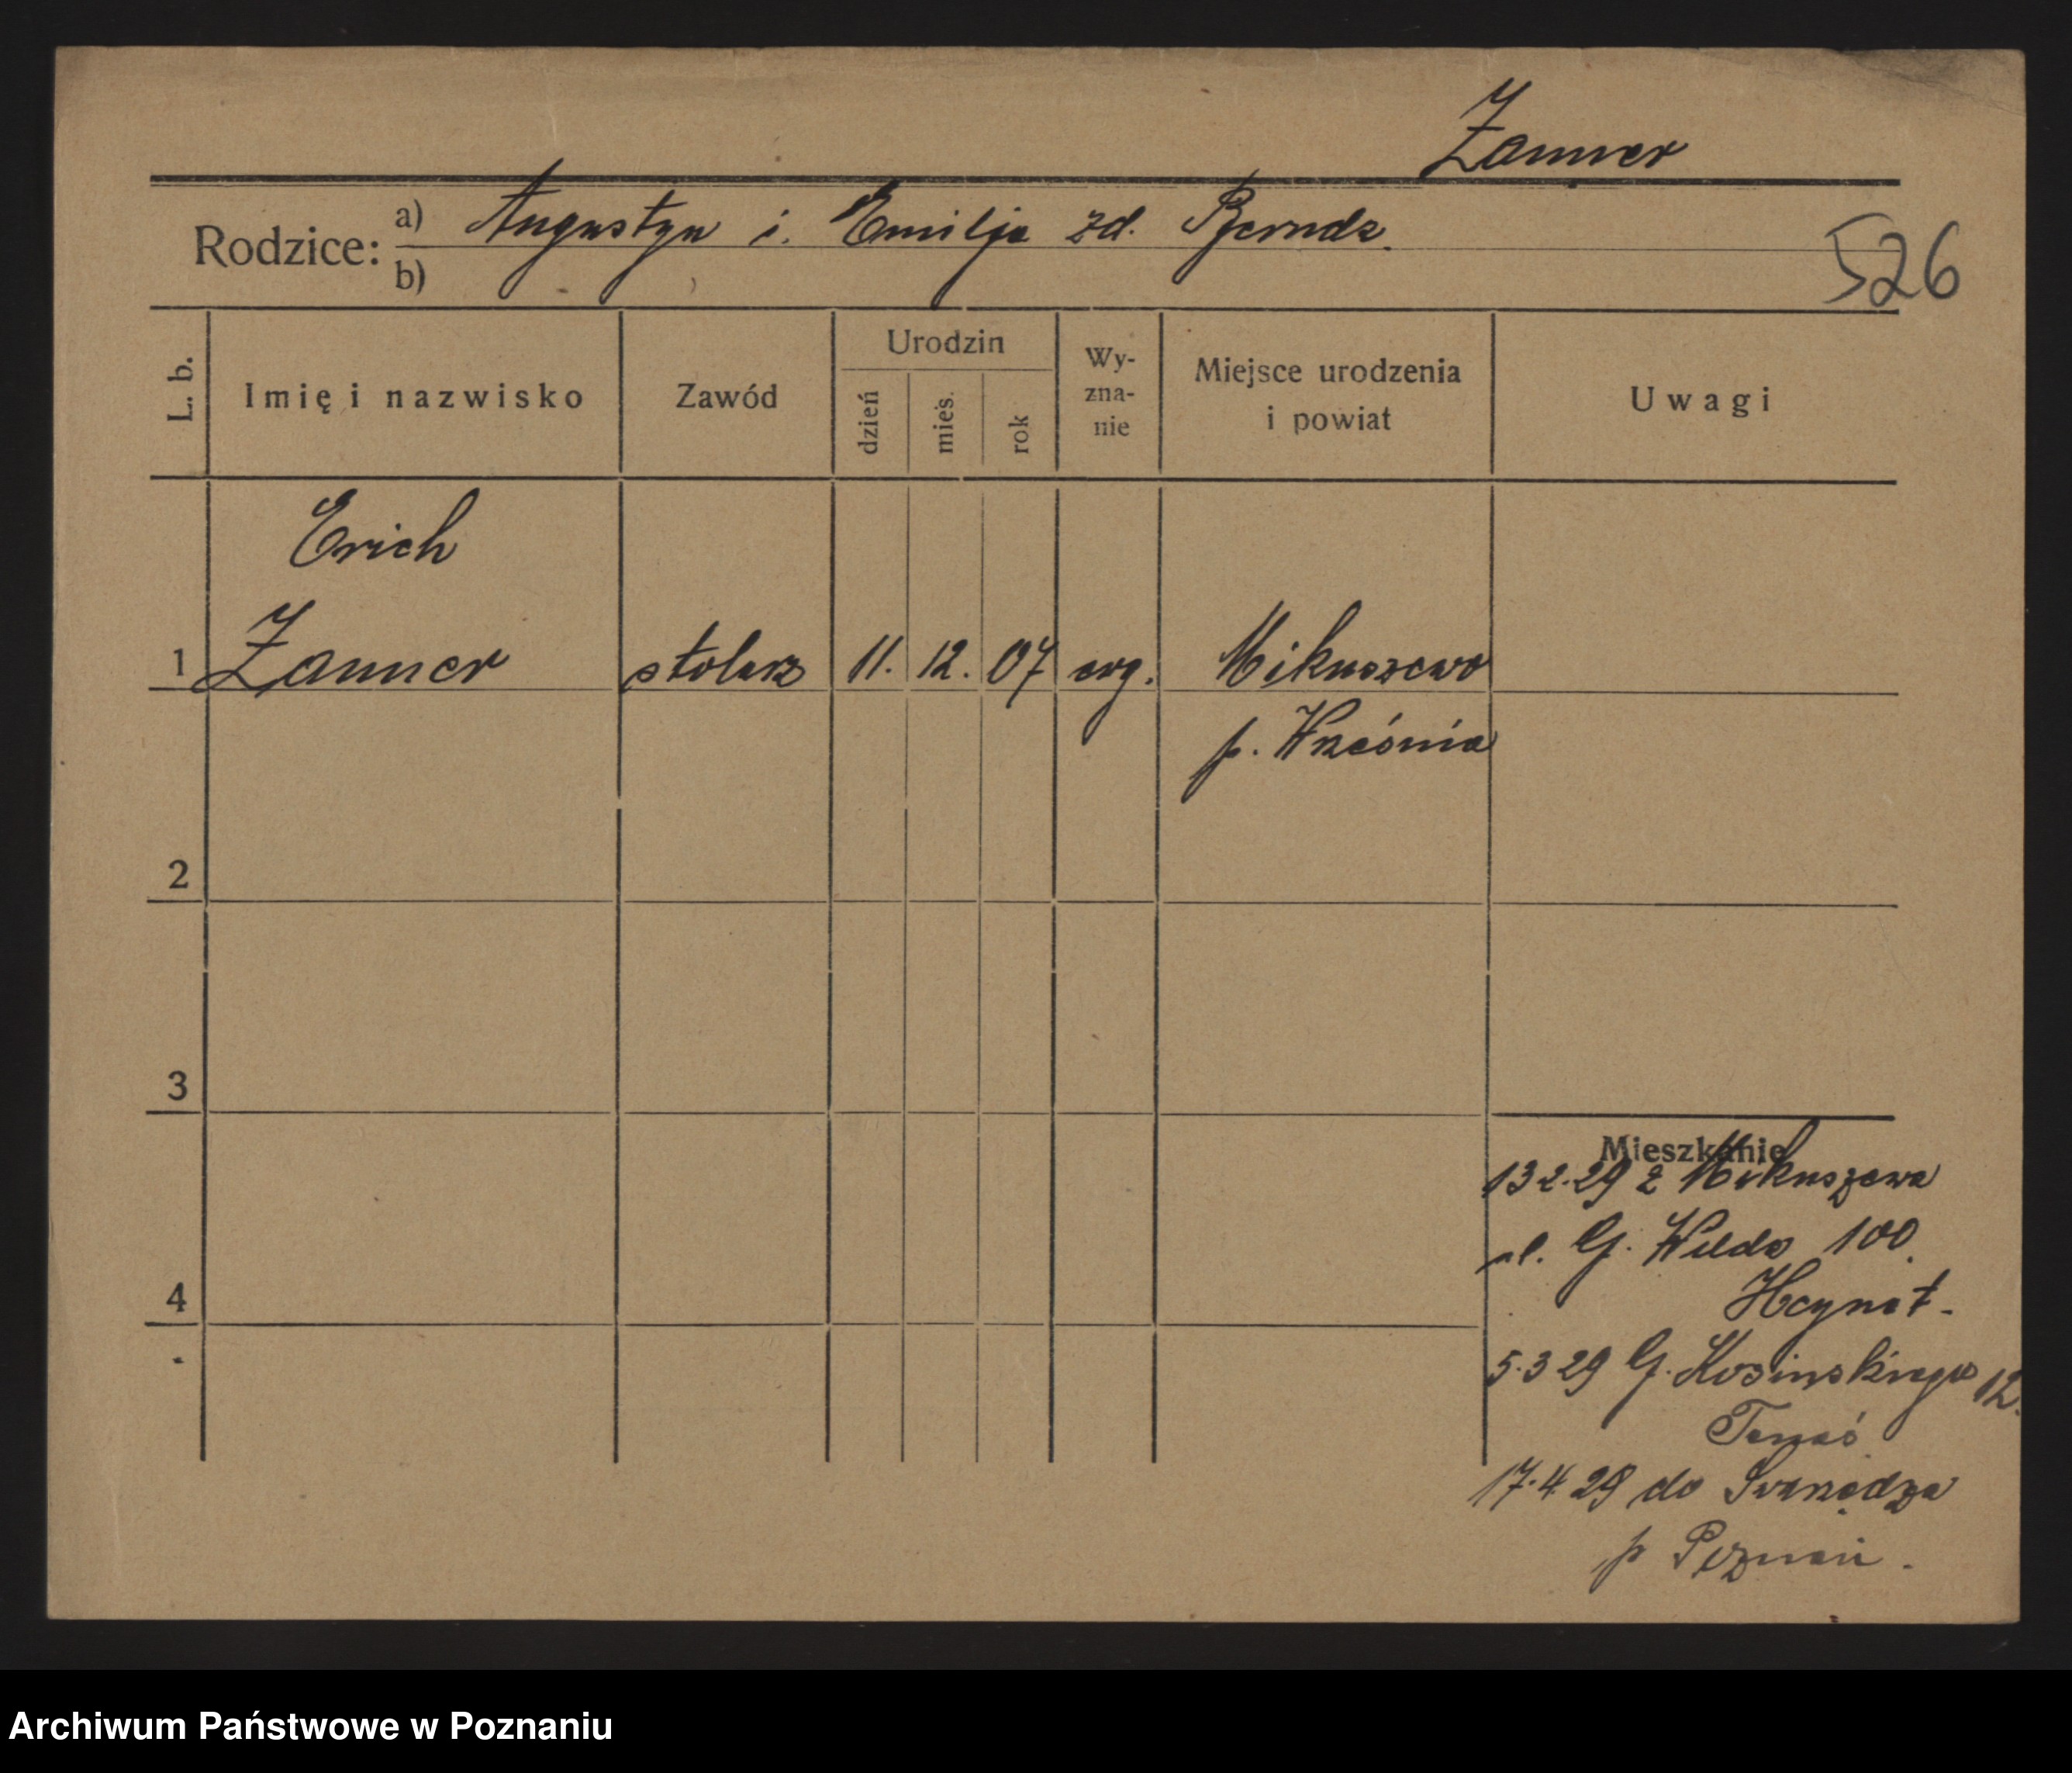 Zanner
Rodzice: a) Augustyn i. Emilja zd.
b)
526
L. b.
Imię i nazwisko
Zawód
Urodzin
dzień
mies.
rok
Wy-
zna-
nie
Miejsce urodzenia
i powiat
Uwagi
Erich
1 Zanner stolarz 11. 12. 07 ewg. Mikuszewo
p. Września
2
3
4
Mieszkanie
13.2.29 z Mikuszewa
ul. G. Wilda 100.
5.3 29 G. Kosinskiego 12.
17.4 29 do Swarzędza
p Poznań.
Archiwum Państwowe w Poznaniu